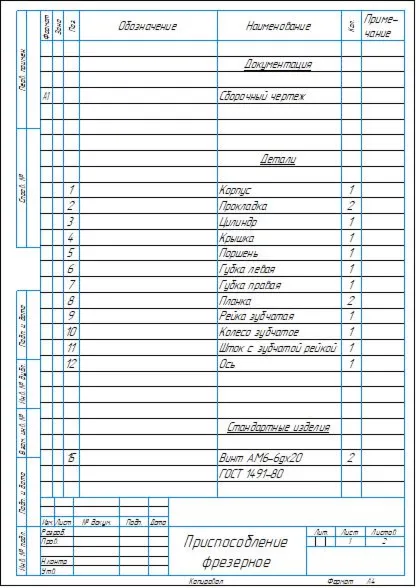 Формат Зона Поз. Обозначение Наименование Кол. Приме-
чание
Перв. примен.
Справ. №
Подп. и дата
Инв. № дубл.
Взам. инв. №
Подп. и дата
Инв. № подл.
Документация
А1 Сборочный чертеж
Детали
1 Корпус 1
2 Прокладка 2
3 Цилиндр 1
4 Крышка 1
5 Поршень 1
6 Губка левая 1
7 Губка правая 1
8 Планка 2
9 Рейка зубчатая 1
10 Колесо зубчатое 1
11 Шток с зубчатой рейкой 1
12 Ось 1
Стандартные изделия
15 Винт АМ6-6gx20 2
ГОСТ 1491-80
Изм. Лист № докум. Подп. Дата
Разраб.
Пров.
Н.контр.
Утв.
Приспособление
фрезерное
Лит. Лист Листов
1 2
Копировал Формат А4